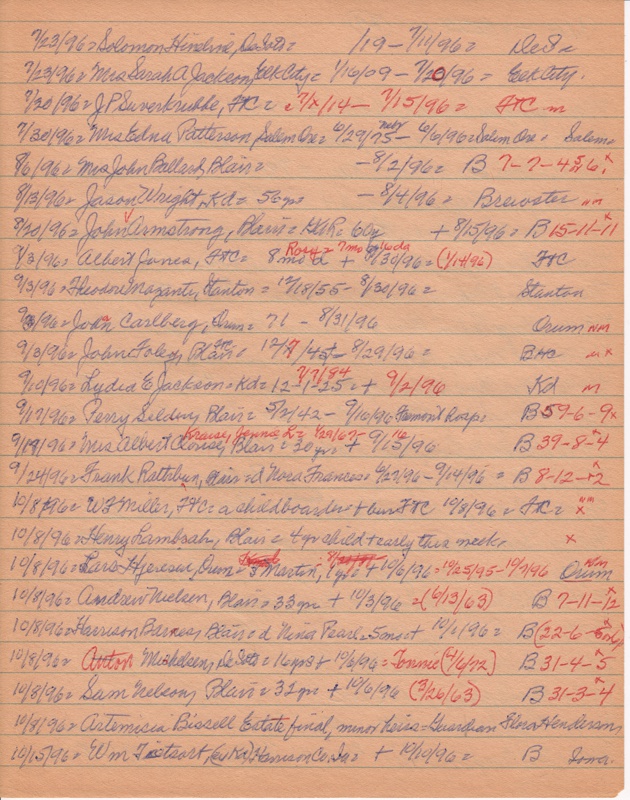 7/23/96 = Solomon Hindline, DeSoto = /19 - 7/11/96 = DeSo
7/23/96 = Mrs Sarah A Jackson, Elk City = 1/16/09 - 7/20/96 = Elk City.
7/30/96 = J P Suverkrubbe, FtC = 7/x/14 - 7/15/96 = FtC m
7/30/96 = Mrs Edna Patterson, Salem Ore = 6/29/75 - 6/6/96 = Salem Ore = Salem
8/6/96 = Mrs John Ballard, Blair = - 8/2/96 = B 7-7-4 5 or 6 x
8/13/96 = Jason Wright, Kd = 56 yr - 8/4/96 = Brewster nm
8/20/96 = John Armstrong, Blair = 60y + 8/15/96 = B 15-11-11 x
9/3/96 = Albert Jones, FtC = 8 mo d + 8/30/96 = (1/14/96) FtC
9/3/96 = Theodore Mozante, Stanton = 12/18/55 - 8/30/96 = Stanton
9/3/96 = John Carlberg, Orum = 71 - 8/31/96 Orum nm
9/3/96 = John Foley, Blair = 12/7/45 - 8/29/96 = B FtC m x
9/10/96 = Lydia E Jackson = Kd = 12-1-25 = + 9/2/96 Kd m
9/17/96 = Perry Selden, Blair = 5/2/42 - 9/16/96 Fremont Hosp = B 59-6-9 x
9/19/96 = Mrs Albert Krause, Jennie L = 4/29/67 - 9/16 Blair = 30 yr + 9/15/96 B 39-8-4 x
9/24/96 = Frank Rathbun, Blair = d Nora Frances = 4/27/96 - 9/14/96 = B 8-12-2 x
10/8/96 = W F Miller, FtC = a child boarder + bur FtC 10/3/96 = FtC = nm x
10/8/96 = Henry Lambrech, Blair = 4 yr child + early this week. x
10/8/96 = Lars Hjeresen, Orum = s Martin, 1 yr = + 10/6/96 = 10/25/95 - 10/7/96 Orum nm
10/8/96 = Andrew Nielsen, Blair = 33 yr + 10/3/96 = (6/13/63) B 7-11-12 x
10/8/96 = Harrison Barnes, Blair = d Nina Pearl = 5 mos + 10/1/96 = B (22-6-6 only)
10/8/96 = Anton Mickelsen, DeSoto = 16 yrs + 10/6/96 = Tonnie (4/6/72) B 31-4-5 x
10/8/96 = Sam Nelson, Blair = 32 yr + 10/6/96 (3/26/63) B 31-3-4 x
10/8/96 = Artemisia Bissell Estate final, minor heirs = Guardian Henderson
10/15/96 = Wm Tietsort, (ex Kd) Harrison Co Ia = + 10/10/96 = B Iowa.